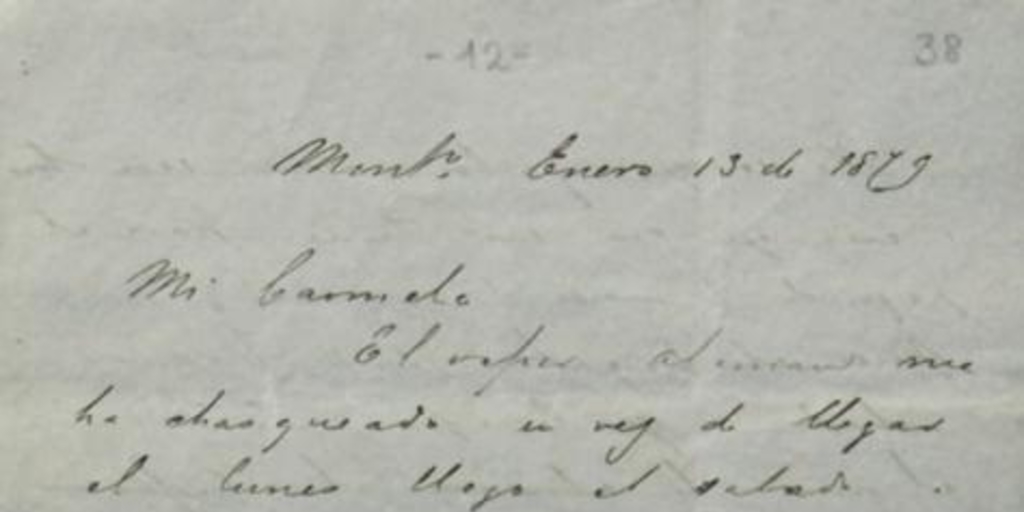 -12- 38
Mont.o Enero 13 de 1879
Mi Carmelo
El vapor aleman me
ha chasqueado en vez de llegar
el lunes llego el sabado.